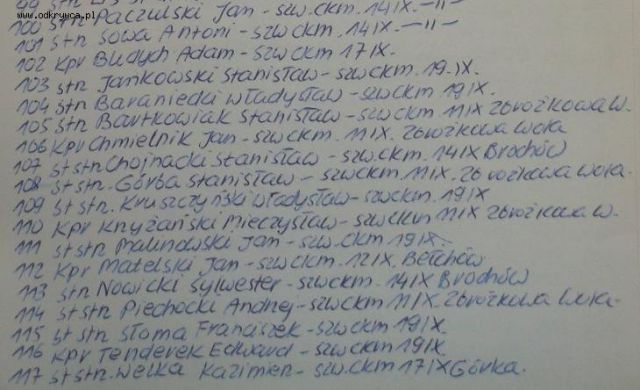 www.odkrywca.pl
100 strz Paczulski Jan - szw.ckm. 14 IX. -II-
101 stn Sowa Antoni - szw ckm. 14 IX. -II-
102 Kpr Budych Adam - szw ckm 17 IX.
103 stn Jankowski Stanisław - szw ckm. 19.IX.
104 stn Baraniecki Władysław - szw ckm 19 IX.
105 stn Bartkowiak Stanisław - szw ckm 11 IX Zbrożkowa W.
106 Kpr Chmielnik Jan - szw.ckm. 11 IX. Zbrożkowa Wola
107 st stn Chojnacki Stanisław - szw.ckm. 14 IX Brochów
108 st stn. Górba Stanisław - szw ckm 11 IX. Zbrożkowa Wola.
109 st stn. Kruszczyński Władysław - szw ckm. 19 IX
110 Kpr Knyżański Mieczysław - szw ckm 11 IX Zbrożkowa W.
111 st stn Malinowski Jan - szw.ckm 19 IX.
112 Kpr Matelski Jan - szw ckm. 12 IX. Bełchów
113 stn Nowicki Sylwester - szw ckm. 14 IX Brochów
114 st stn Piechocki Andnej - szw ckm 11 IX. Zbrożkowa Wola.
115 st stn Słoma Franciszek - szw ckm 19 IX
116 Kpr Tenderek Edward - szw ckm 19 IX
117 st stn. Welka Kazimien - szw ckm 17 IX Górka.